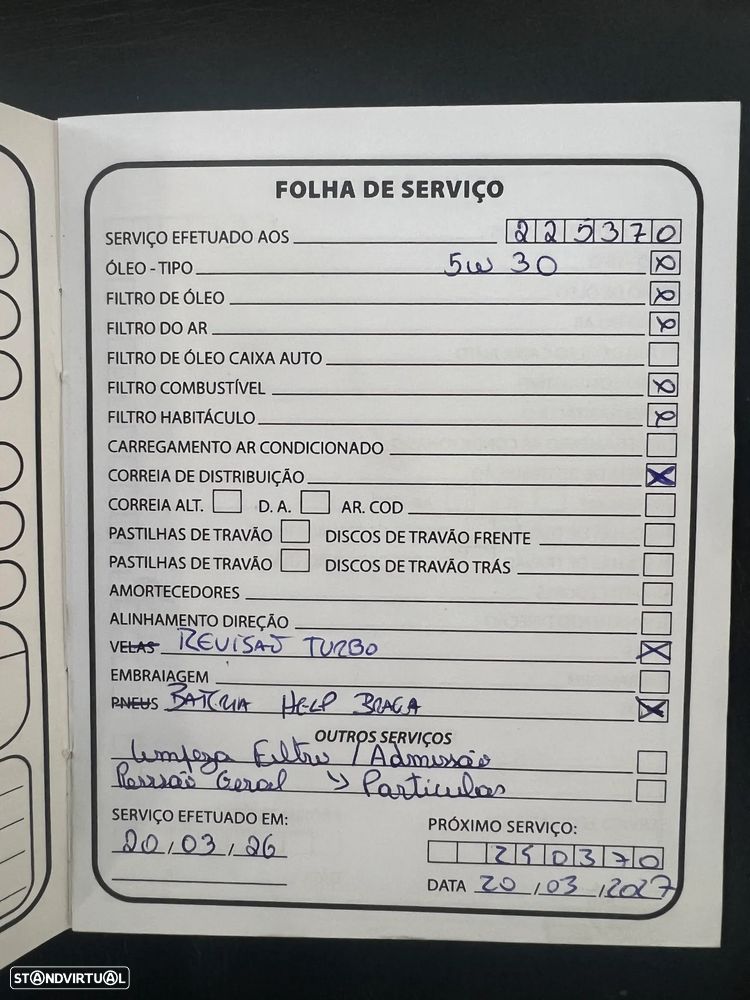 FOLHA DE SERVIÇO
SERVIÇO EFETUADO AOS 225370
ÓLEO - TIPO 5W 30 X
FILTRO DE ÓLEO X
FILTRO DO AR X
FILTRO DE ÓLEO CAIXA AUTO
FILTRO COMBUSTÍVEL X
FILTRO HABITÁCULO X
CARREGAMENTO AR CONDICIONADO
CORREIA DE DISTRIBUIÇÃO X
CORREIA ALT. D. A. AR. COD
PASTILHAS DE TRAVÃO DISCOS DE TRAVÃO FRENTE
PASTILHAS DE TRAVÃO DISCOS DE TRAVÃO TRÁS
AMORTECEDORES
ALINHAMENTO DIREÇÃO
VELAS REVISAO TURBO X
EMBRAIAGEM
PNEUS BATERIA HELP BRAGA X
OUTROS SERVIÇOS
Limpeza Filtro / Admissão
Geral → Particulas
SERVIÇO EFETUADO EM:
20/03/26
PRÓXIMO SERVIÇO:
250370
DATA 20/03/2027
STANDVIRTUAL